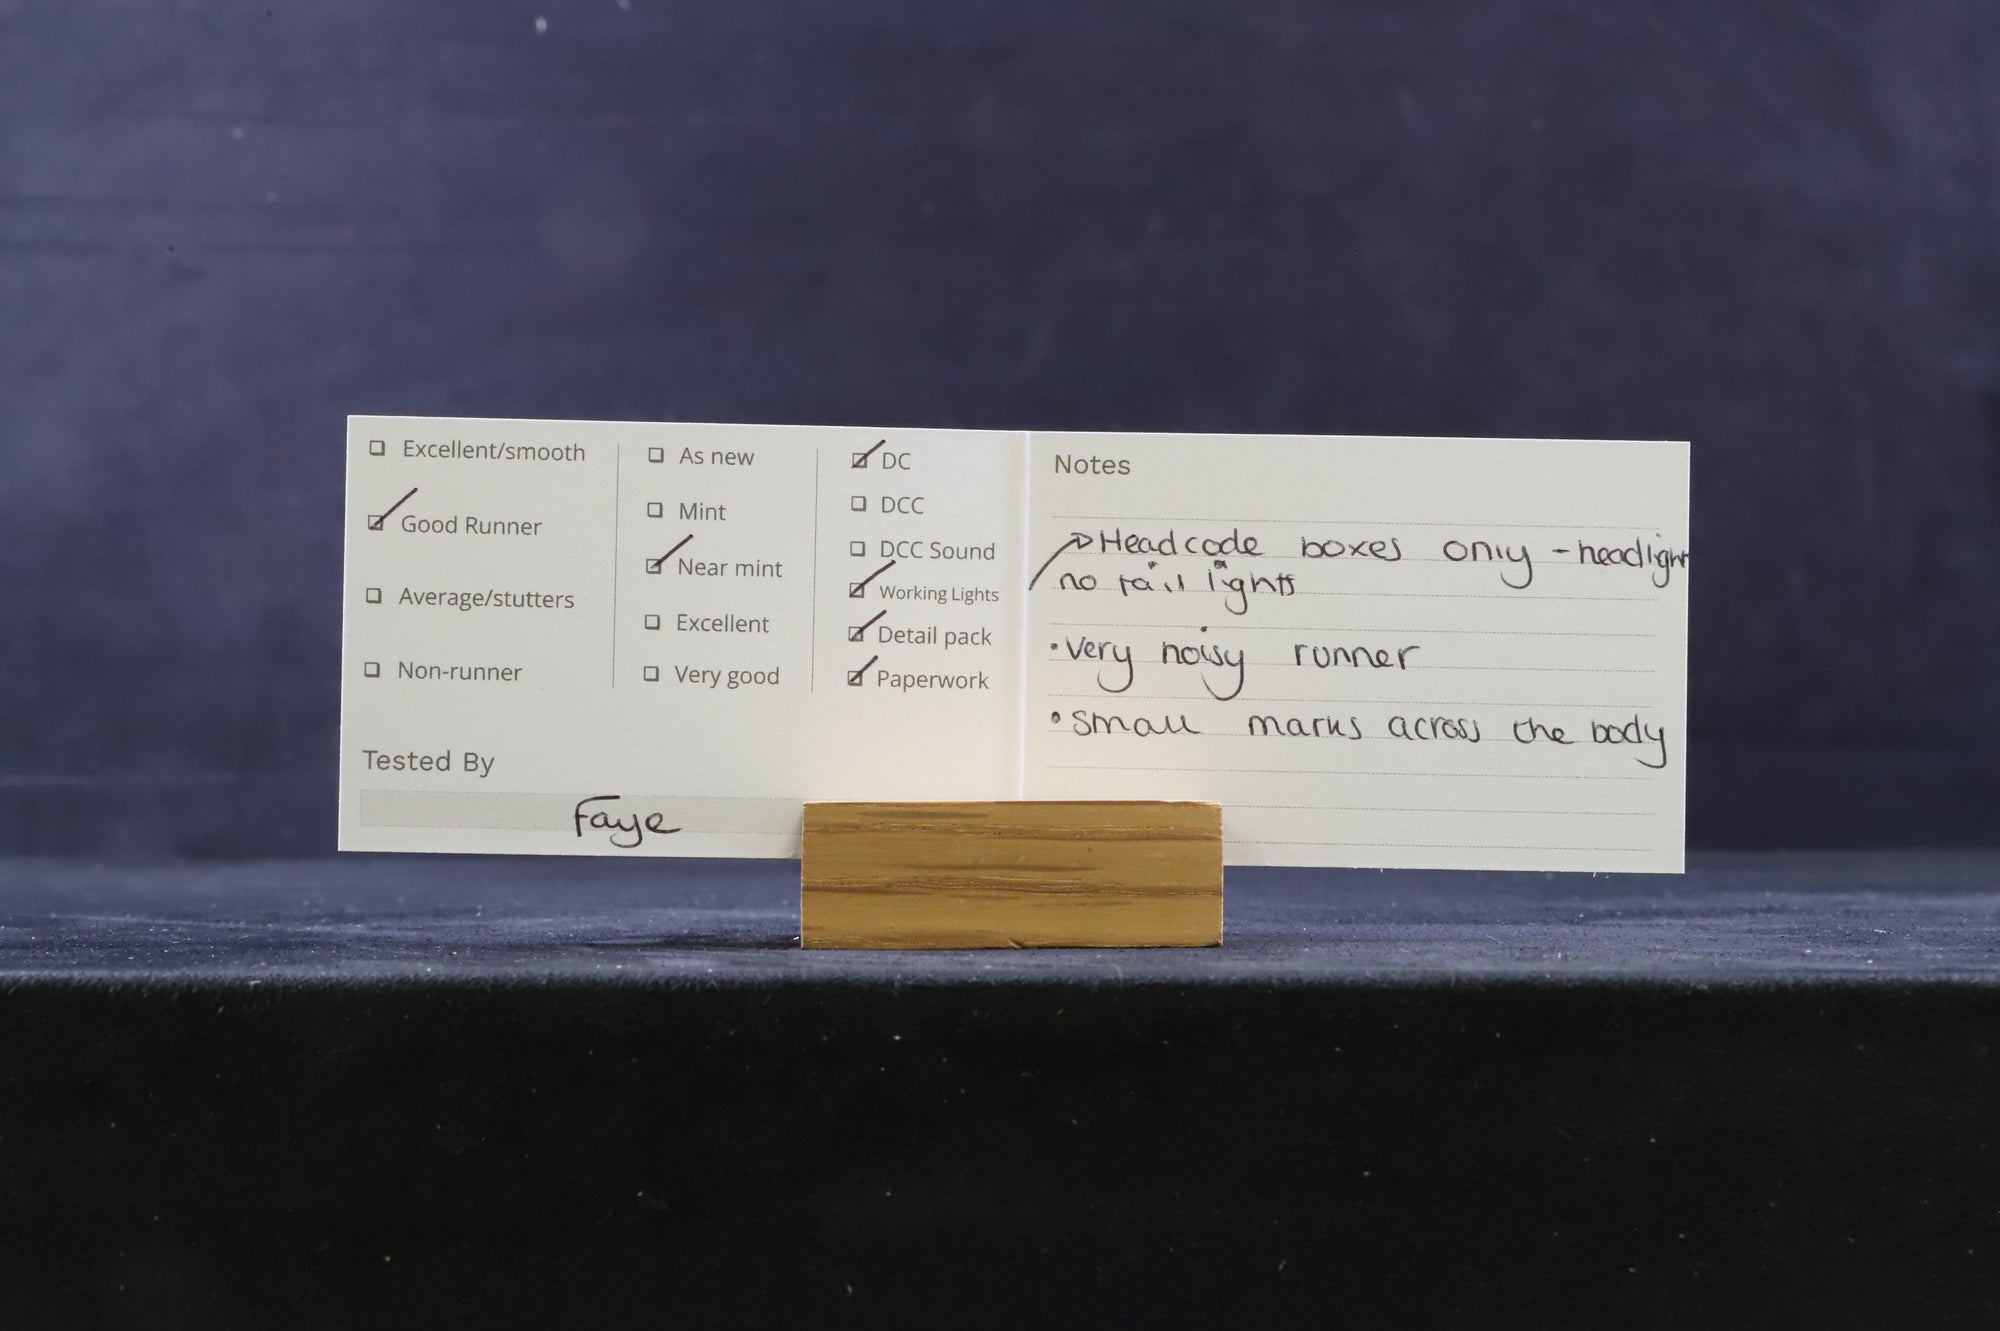 Excellent/smooth
Good Runner
Average/stutters
Non-runner
Tested By
Faye
As new
Mint
Near mint
Excellent
Very good
DC
DCC
DCC Sound
Working Lights
Detail pack
Paperwork
Notes
Headcode boxes only - headlight
no tail lights
• very noisy runner
• small marks across the body